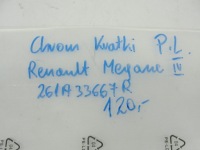 Chrom Kratki P.L.
Renault Megane IV
261A33667R
120,-